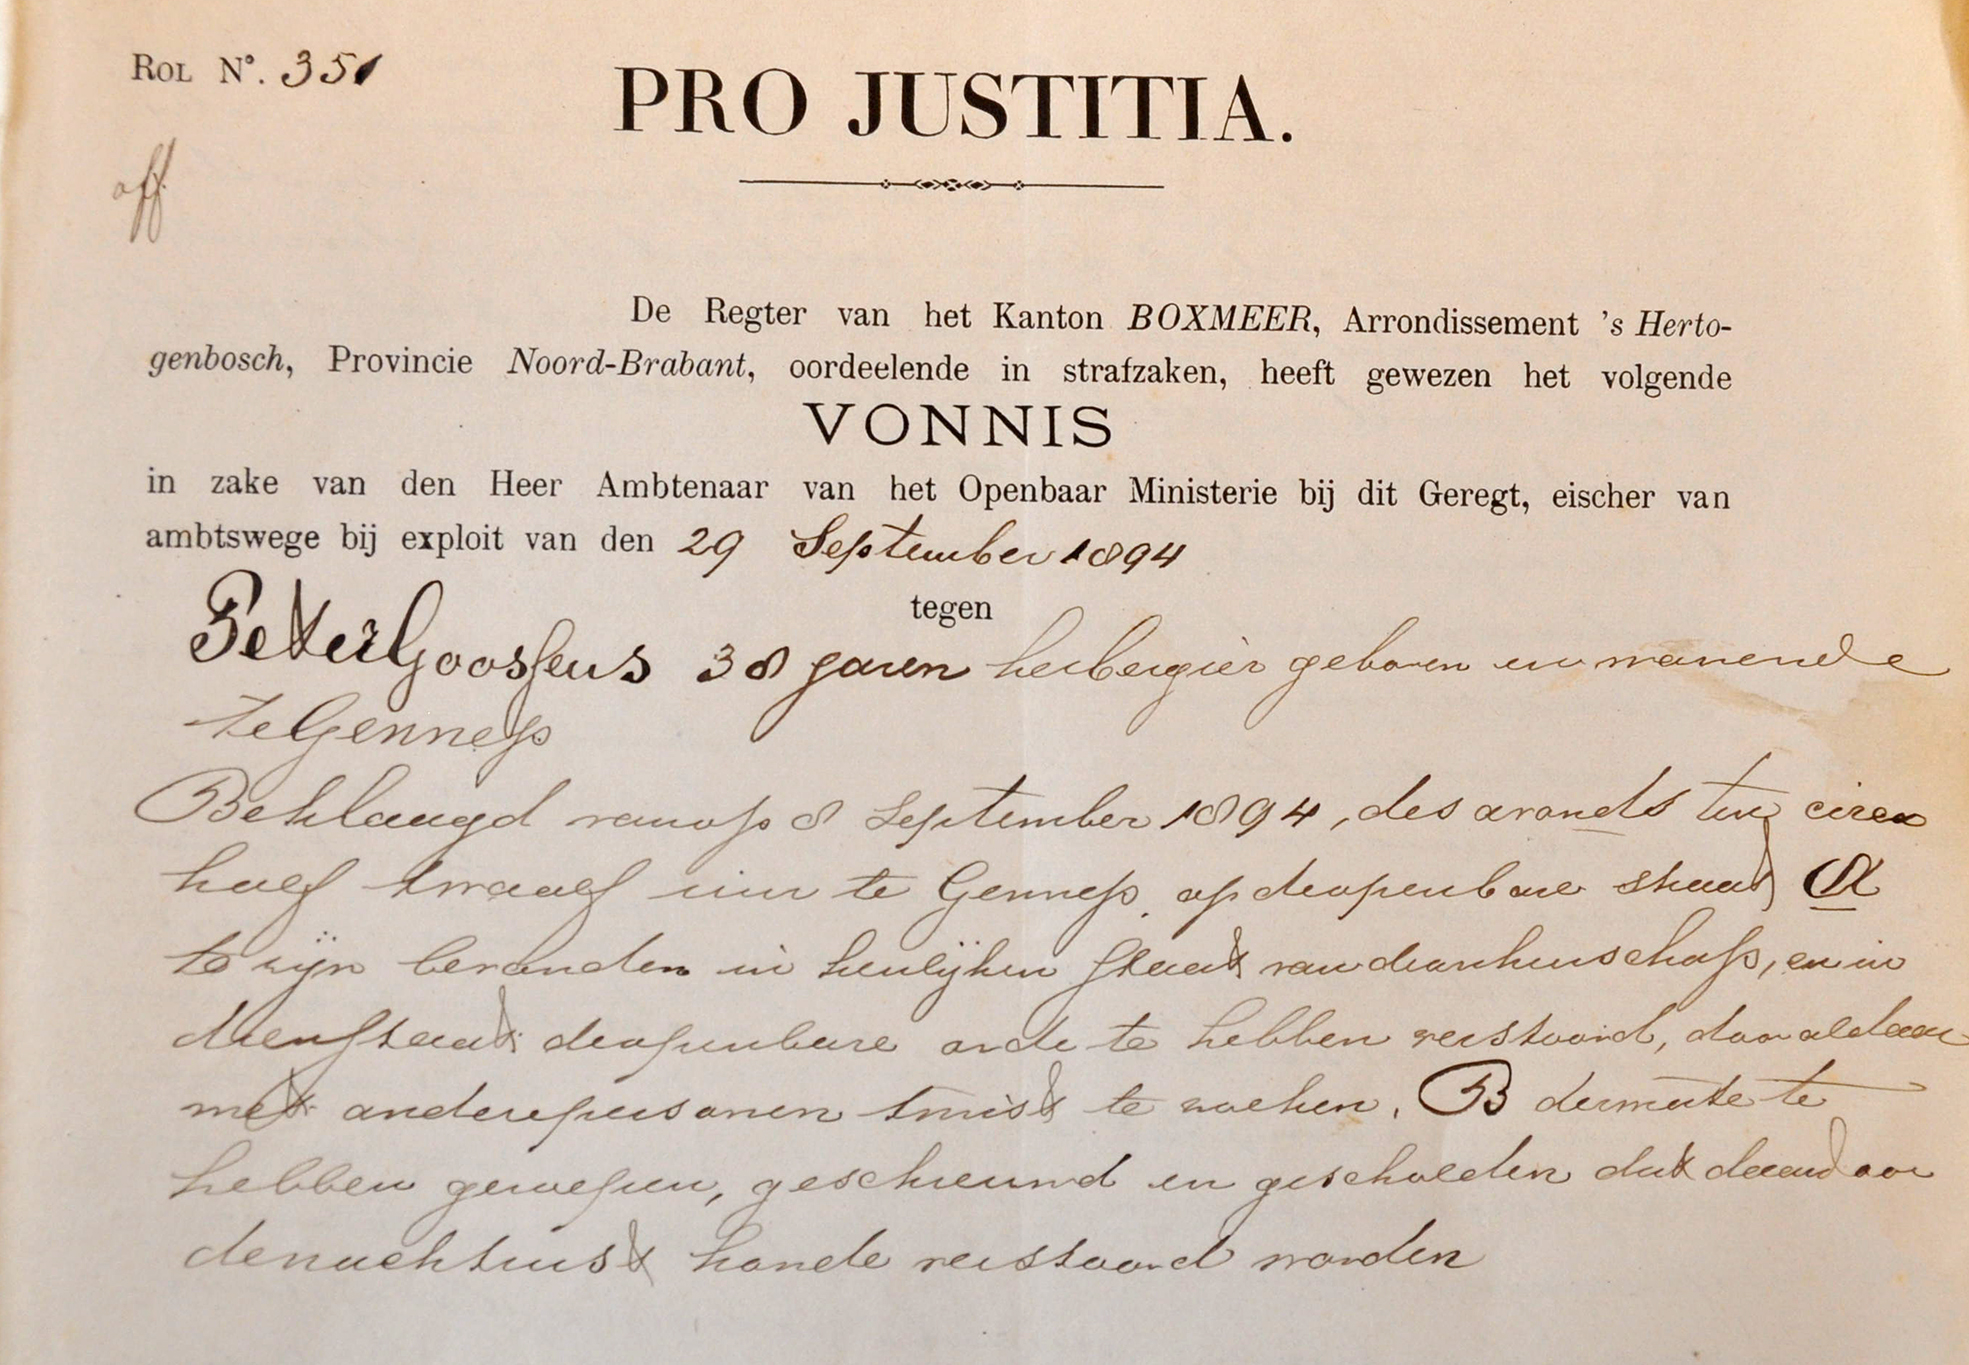 ROL N°. 351
PRO JUSTITIA.
off
De Regter van het Kanton BOXMEER, Arrondissement 's Herto-
genbosch, Provincie Noord-Brabant, oordeelende in strafzaken, heeft gewezen het volgende
VONNIS
in zake van den Heer Ambtenaar van het Openbaar Ministerie bij dit Geregt, eischer van
ambtswege bij exploit van den 29 September 1894
tegen
Peter Goossens 38 jaren herbergier geboren en wonende
te Gennep
Beklaagd van op 8 September 1894, des avonds ten circa
half twaalf uur te Gennep op de openbare straat A
te zijn bevonden in kenlijken staat van dronkenschap, en in
dien staat de openbare orde te hebben verstoord, door aldaar
met andere personen twist te zoeken. B dermate te
hebben geroepen, geschreeuwd en gescholden dat daardoor
de nachtrust konde verstoord worden